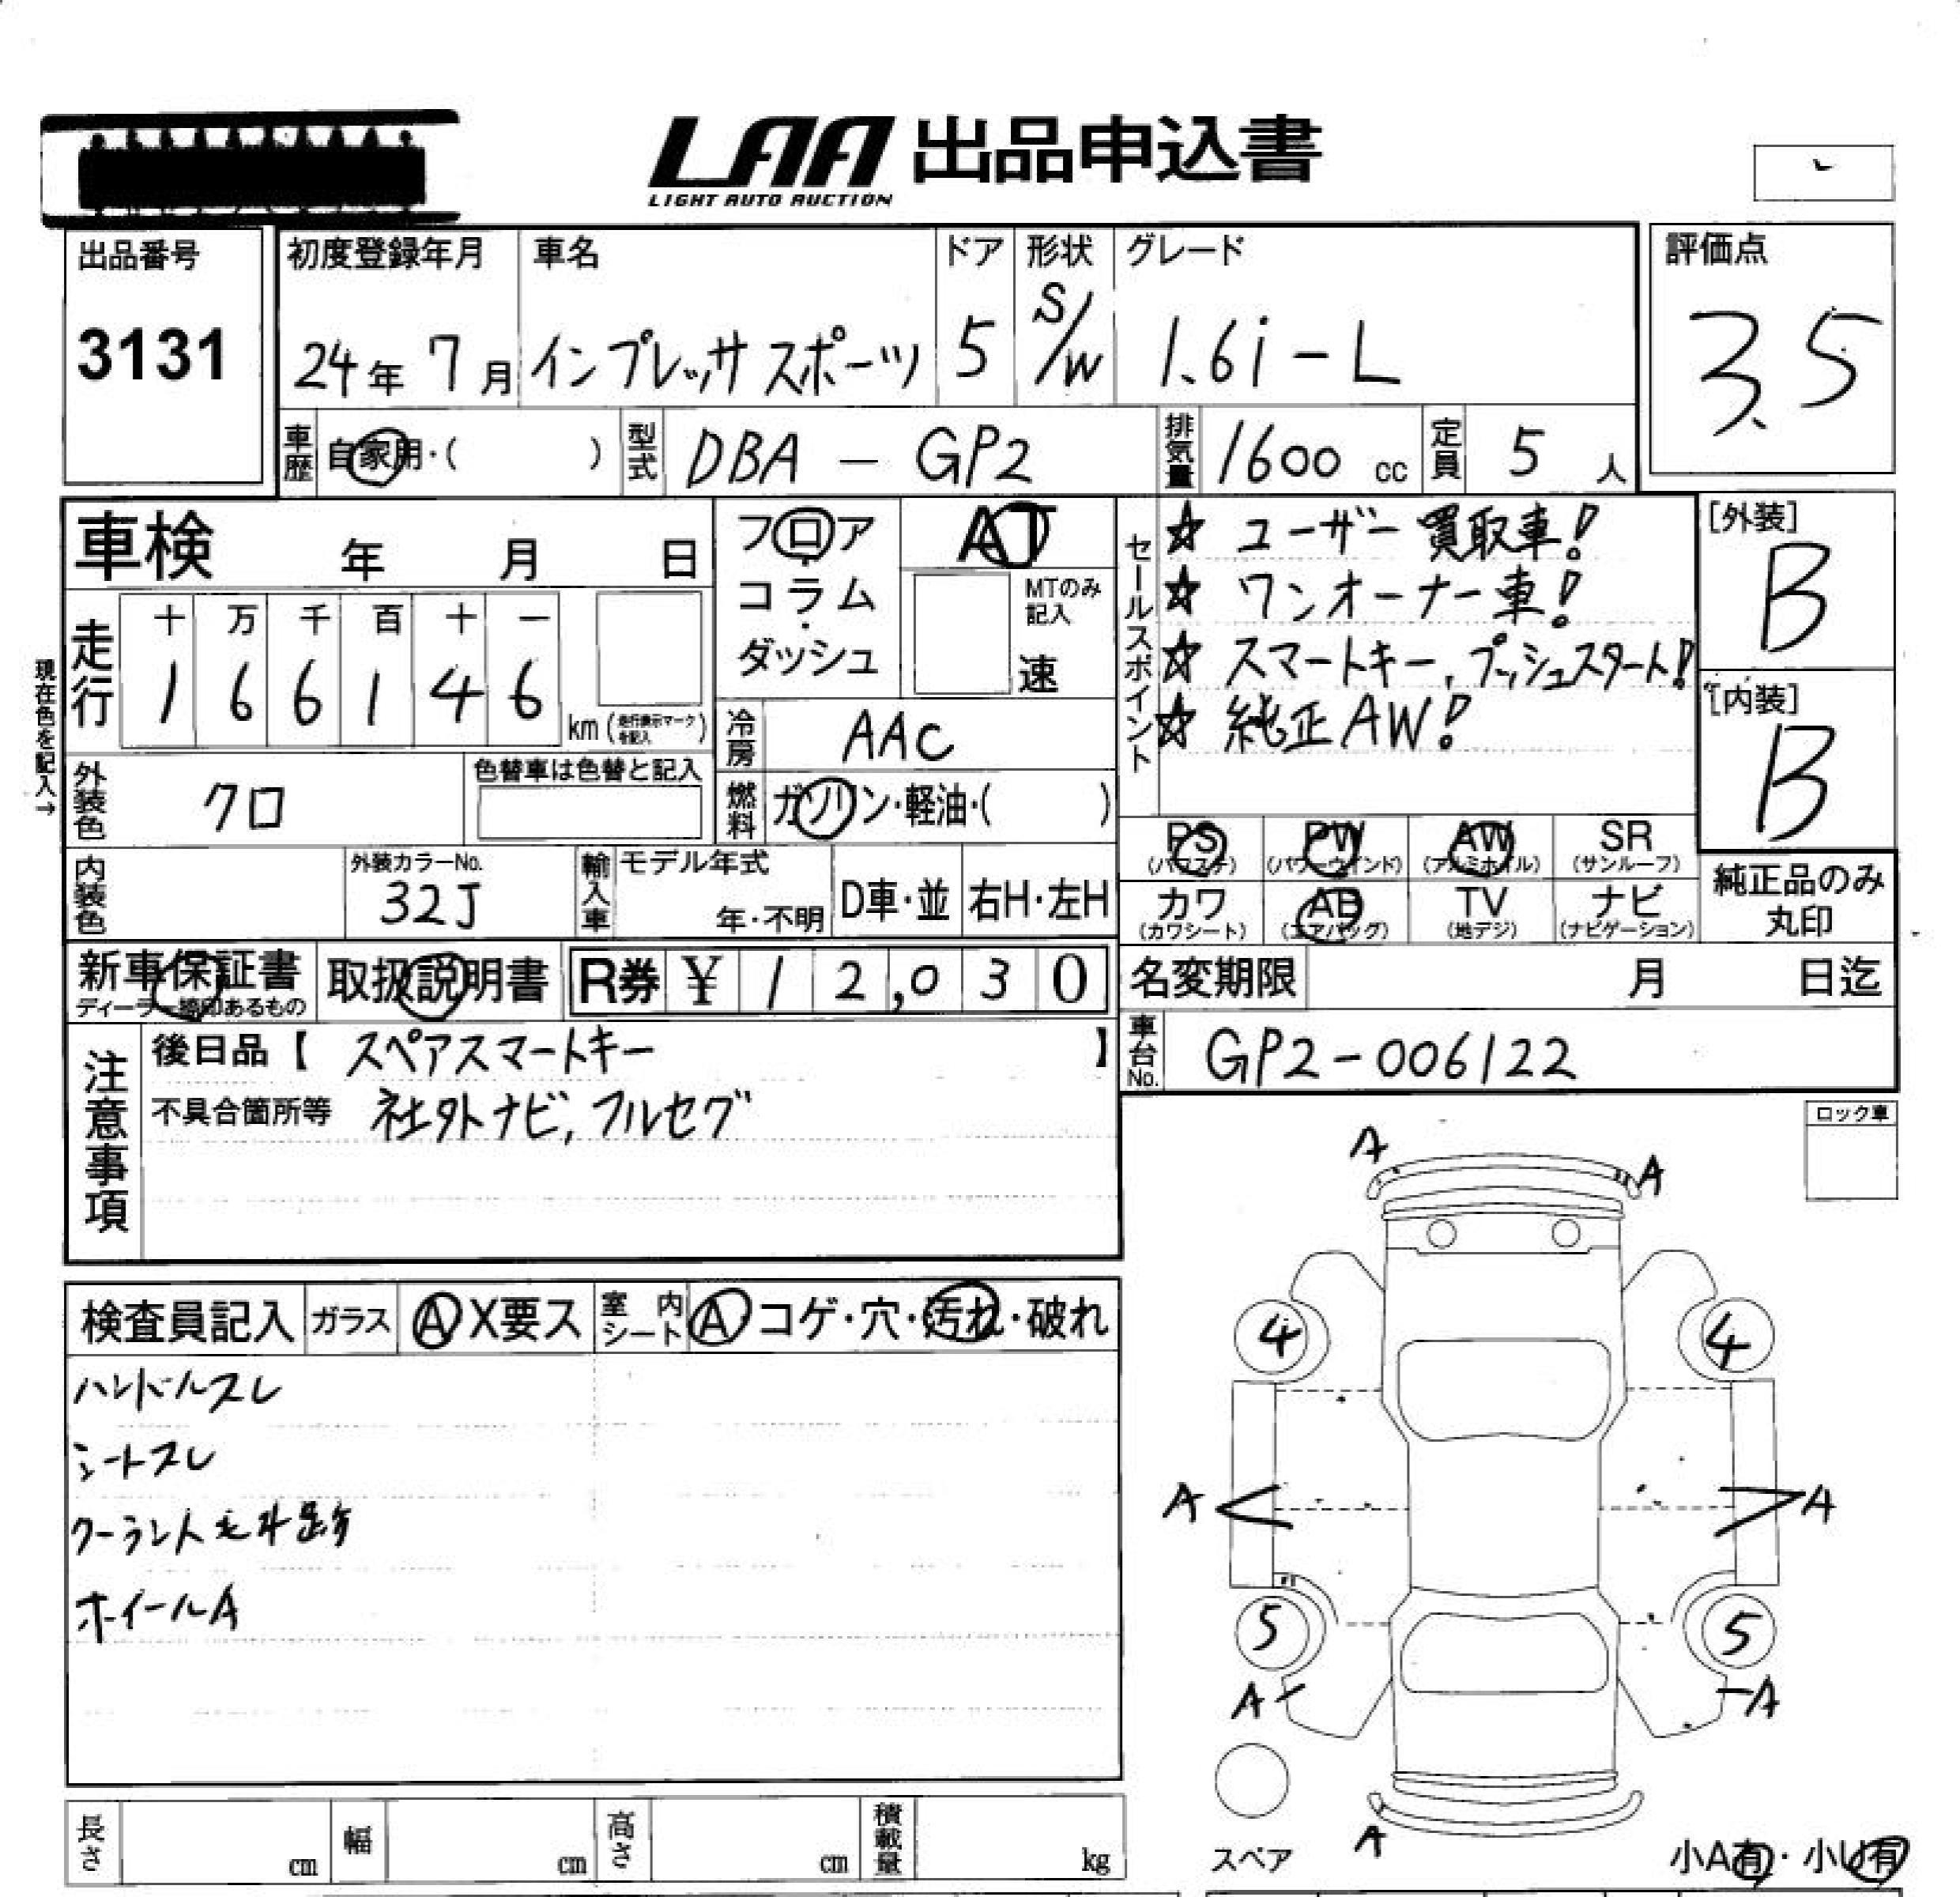 LAA 出品申込書
LIGHT AUTO AUCTION
出品番号
3131
初度登録年月
24年 7月
車名
インプレッサ スポーツ
ドア
5
形状
S/W
グレード
1.6i-L
評価点
3.5
車歴
自家用・( )
型式
DBA - GP2
排気量
1600 cc
定員
5 人
車検 年 月 日
フロア・コラム・ダッシュ
AT
MTのみ記入
速
セールスポイント
☆ ユーザー買取車!
☆ ワンオーナー車!
☆ スマートキー, プッシュスタート!
☆ 純正AW!
[外装]
B
[内装]
B
現在色を記入→
走行
十 万 千 百 十 一
1 6 6 1 4 6
km (走行表示マークを記入)
冷房
AAC
外装色
クロ
色替車は色替と記入
燃料
ガソリン・軽油・( )
内装色
外装カラーNo.
32J
輸入車
モデル年式
年・不明
D車・並
右H・左H
PS (パワステ)
PW (パワーウインド)
AW (アルミホイル)
SR (サンルーフ)
カワ (カワシート)
AB (エアバッグ)
TV (地デジ)
ナビ (ナビゲーション)
純正品のみ丸印
新車保証書
ディーラー捺印あるもの
取扱説明書
R券 ¥ 1 2,0 3 0
名変期限 月 日迄
車台No.
GP2-006122
注意事項
後日品【 スペアスマートキー 】
不具合箇所等 社外ナビ, フルセグ
ロック車
検査員記入
ガラス
A X要ス
室内シート
A コゲ・穴・汚れ・破れ
ハンドルスレ
シートスレ
ホイールA
A
A
4
4
A
A
5
5
A
A
スペア
A
小A有・小U有
長さ cm
幅 cm
高さ cm
積載量 kg